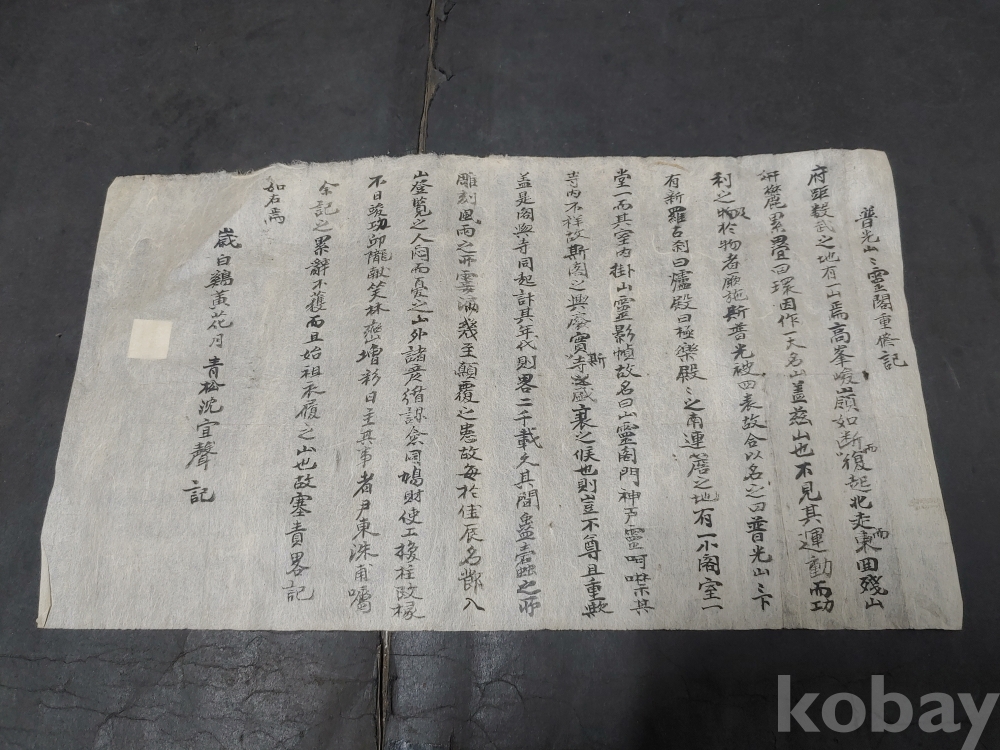 普光山山靈閣重修記
府距數武之地有一山焉高峯峻嶺如斷而復起北走東而回殘山
麓累疊回環因作一大名山盖玆山也不見其運動而功
利之及於物者厥施斯普光被四表故合以名之曰普光山山下
有新羅古刹曰爐殿曰極樂殿殿之南連簷之地有一小閣室一
堂一而其室內掛山靈影幀故名曰山靈閣門神戶靈呵噤其
寺內不祥故斯閣之興廢實斯寺盛衰之候也則豈不尊且重歟
盖是閣與寺同起計其年代則畧二千載久其間蠱蠹蟲之所
雕刻風雨之所霑洒幾至顚覆之患故每於佳辰名節入
山登覽之人悶而憂之山外諸彦循謀僉同鳩財使工換柱改椽
不日竣功邱隴獻笑林巒增彩日主其事者尹東洙甫囑
余記之累辭不獲而且始祖衣履之山也故塞責畧記
如右焉
歲白鷄黃花月 青松沈宜聲 記
kobay